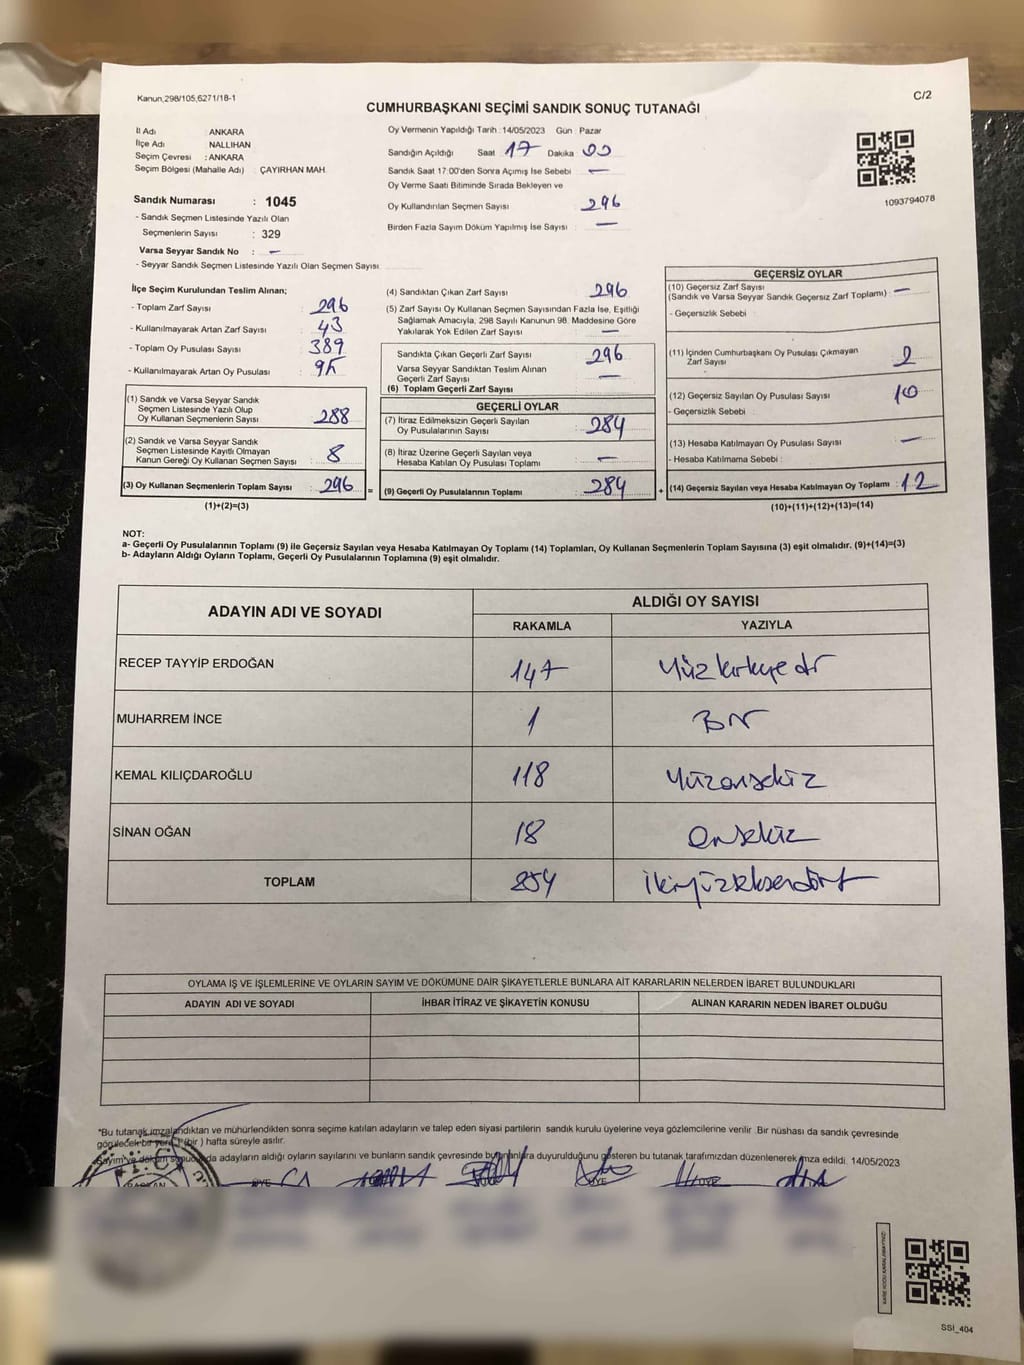 Kanun,298/105,6271/18-1
C/2
CUMHURBAŞKANI SEÇİMİ SANDIK SONUÇ TUTANAĞI
İl Adı : ANKARA
İlçe Adı : NALLIHAN
Seçim Çevresi : ANKARA
Seçim Bölgesi (Mahalle Adı) : ÇAYIRHAN MAH.
Sandık Numarası : 1045
- Sandık Seçmen Listesinde Yazılı Olan
Seçmenlerin Sayısı : 329
Varsa Seyyar Sandık No : -
- Seyyar Sandık Seçmen Listesinde Yazılı Olan Seçmen Sayısı
Oy Vermenin Yapıldığı Tarih : 14/05/2023 Gün : Pazar
Sandığın Açıldığı Saat 17 Dakika 00
Sandık Saat 17:00'den Sonra Açımış İse Sebebi : -
Oy Verme Saati Bitiminde Sırada Bekleyen ve
Oy Kullandırılan Seçmen Sayısı : 296
Birden Fazla Sayım Döküm Yapılmış İse Sayısı : -
1093794078
İlçe Seçim Kurulundan Teslim Alınan;
- Toplam Zarf Sayısı : 296
- Kullanılmayarak Artan Zarf Sayısı : 43
- Toplam Oy Pusulası Sayısı : 389
- Kullanılmayarak Artan Oy Pusulası :
(1) Sandık ve Varsa Seyyar Sandık
Seçmen Listesinde Yazılı Olup
Oy Kullanan Seçmenlerin Sayısı : 288
(2) Sandık ve Varsa Seyyar Sandık
Seçmen Listesinde Kayıtlı Olmayan
Kanun Gereği Oy Kullanan Seçmen Sayısı : 8
(3) Oy Kullanan Seçmenlerin Toplam Sayısı : 296
(1)+(2)=(3)
(4) Sandıktan Çıkan Zarf Sayısı : 296
(5) Zarf Sayısı Oy Kullanan Seçmen Sayısından Fazla İse, Eşitliği
Sağlamak Amacıyla, 298 Sayılı Kanunun 98. Maddesine Göre
Yakılarak Yok Edilen Zarf Sayısı : -
Sandıkta Çıkan Geçerli Zarf Sayısı : 296
Varsa Seyyar Sandıktan Teslim Alınan
Geçerli Zarf Sayısı : -
(6) Toplam Geçerli Zarf Sayısı
GEÇERLİ OYLAR
(7) İtiraz Edilmeksizin Geçerli Sayılan
Oy Pusulalarının Sayısı : 284
(8) İtiraz Üzerine Geçerli Sayılan veya
Hesaba Katılan Oy Pusulası Toplamı : -
= (9) Geçerli Oy Pusulalarının Toplamı : 284
GEÇERSİZ OYLAR
(10) Geçersiz Zarf Sayısı
(Sandık ve Varsa Seyyar Sandık Geçersiz Zarf Toplamı) : -
- Geçersizlik Sebebi :
(11) İçinden Cumhurbaşkanı Oy Pusulası Çıkmayan
Zarf Sayısı : 2
(12) Geçersiz Sayılan Oy Pusulası Sayısı : 10
- Geçersizlik Sebebi :
(13) Hesaba Katılmayan Oy Pusulası Sayısı : -
- Hesaba Katılmama Sebebi :
+ (14) Geçersiz Sayılan veya Hesaba Katılmayan Oy Toplamı : 12
(10)+(11)+(12)+(13)=(14)
NOT:
a- Geçerli Oy Pusulalarının Toplamı (9) ile Geçersiz Sayılan veya Hesaba Katılmayan Oy Toplamı (14) Toplamları, Oy Kullanan Seçmenlerin Toplam Sayısına (3) eşit olmalıdır. (9)+(14)=(3)
b- Adayların Aldığı Oyların Toplamı, Geçerli Oy Pusulalarının Toplamına (9) eşit olmalıdır.
ADAYIN ADI VE SOYADI ALDIĞI OY SAYISI
RAKAMLA YAZIYLA
RECEP TAYYİP ERDOĞAN 147 Yüzkırkyedi
MUHARREM İNCE 1 Bir
KEMAL KILIÇDAROĞLU 118 Yüzonsekiz
SİNAN OĞAN 18 Onsekiz
TOPLAM 284 İkiyüzseksendört
OYLAMA İŞ VE İŞLEMLERİNE VE OYLARIN SAYIM VE DÖKÜMÜNE DAİR ŞİKAYETLERLE BUNLARA AİT KARARLARIN NELERDEN İBARET BULUNDUKLARI
ADAYIN ADI VE SOYADI İHBAR İTİRAZ VE ŞİKAYETİN KONUSU ALINAN KARARIN NEDEN İBARET OLDUĞU
*Bu tutanak imzalandıktan ve mühürlendikten sonra seçime katılan adayların ve talep eden siyasi partilerin sandık kurulu üyelerine veya gözlemcilerine verilir. Bir nüshası da sandık çevresinde
görülecek bir yere 1 (bir) hafta süreyle asılır.
Sayım ve döküm sonucunda adayların aldığı oyların sayılarını ve bunların sandık çevresinde bulunanlara duyurulduğunu gösteren bu tutanak tarafımızdan düzenlenerek imza edildi. 14/05/2023
BAŞKAN ÜYE ÜYE ÜYE
SSI_404